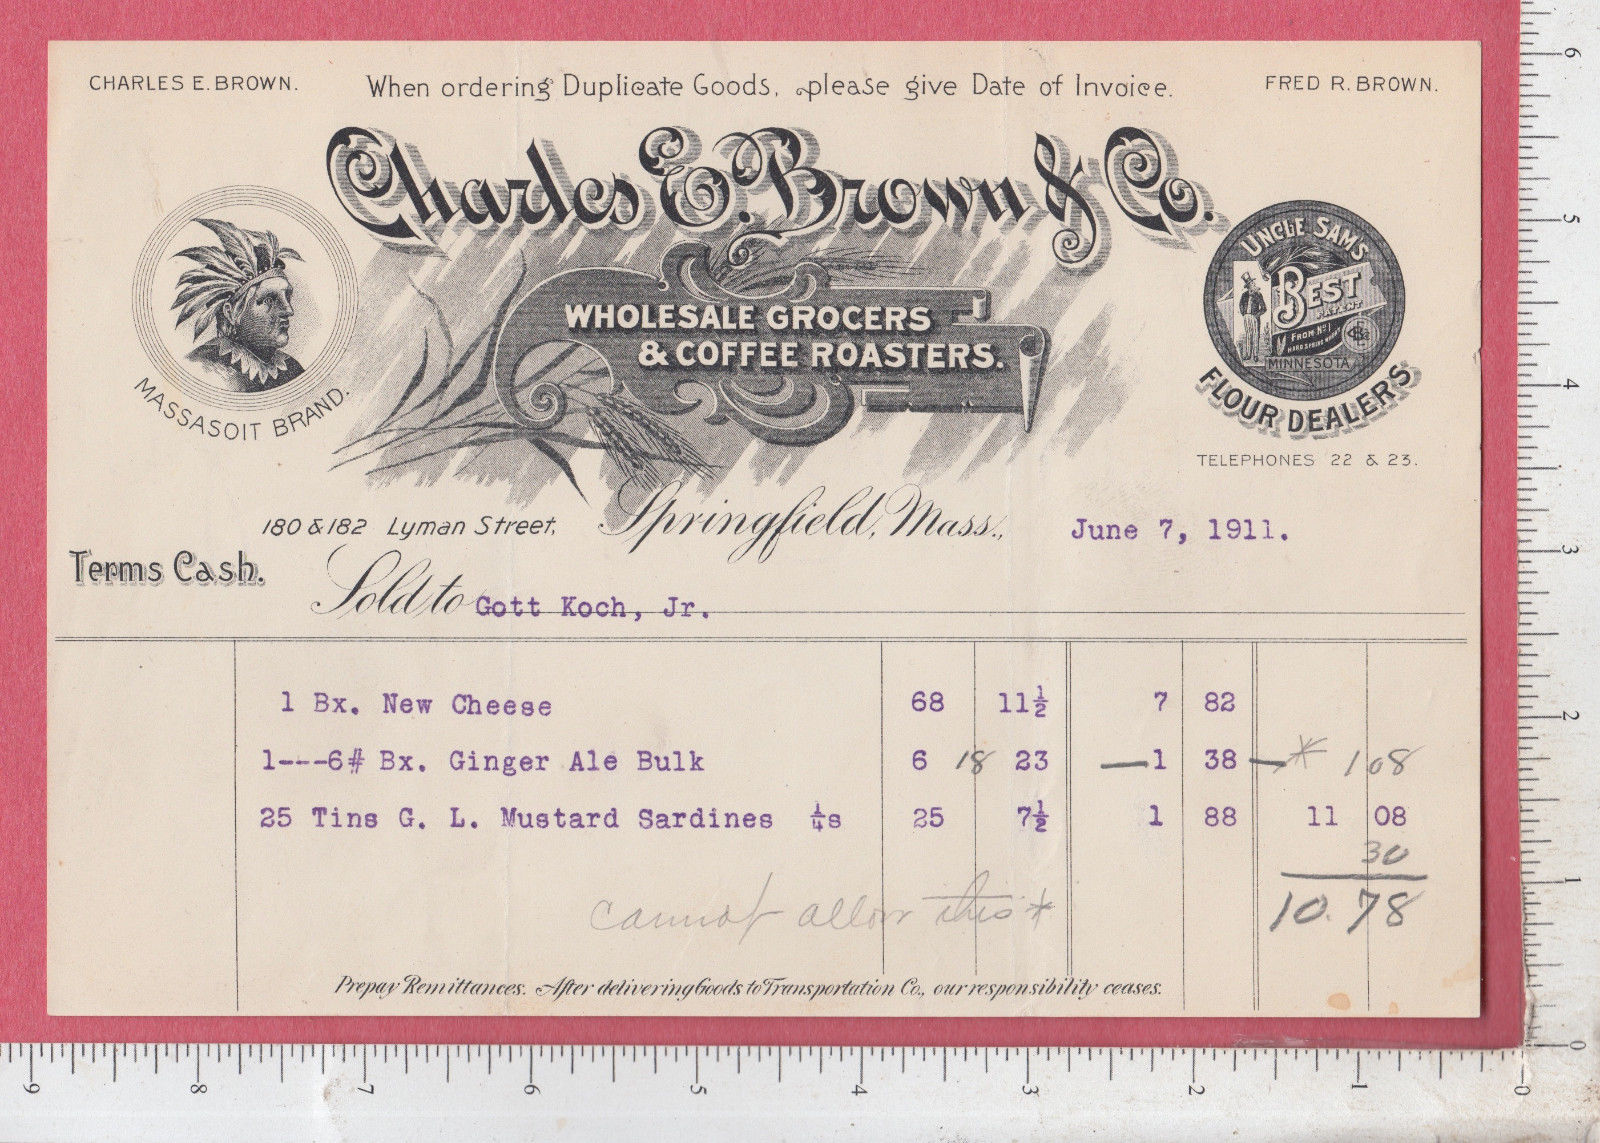 CHARLES E. BROWN.
When ordering Duplicate Goods, please give Date of Invoice.
FRED R. BROWN.
Charles E. Brown & Co.
WHOLESALE GROCERS
& COFFEE ROASTERS.
MASSASOIT BRAND.
UNCLE SAM'S
BEST
PATENT
FROM No 1
HARD SPRING WHEAT
MINNESOTA
FLOUR DEALERS
TELEPHONES 22 & 23.
180 & 182 Lyman Street, Springfield, Mass., June 7, 1911.
Terms Cash.
Sold to Gott Koch, Jr.
1 Bx. New Cheese 68 11½ 7 82
1---6# Bx. Ginger Ale Bulk 6 18 23 —1 38 —* 108
25 Tins G. L. Mustard Sardines ¼s 25 7½ 1 88 11 08
30
cannot allow this * 10.78
Prepay Remittances. After delivering Goods to Transportation Co., our responsibility ceases.
6
5
4
3
2
1
0
9
8
7
6
5
4
3
2
1
0